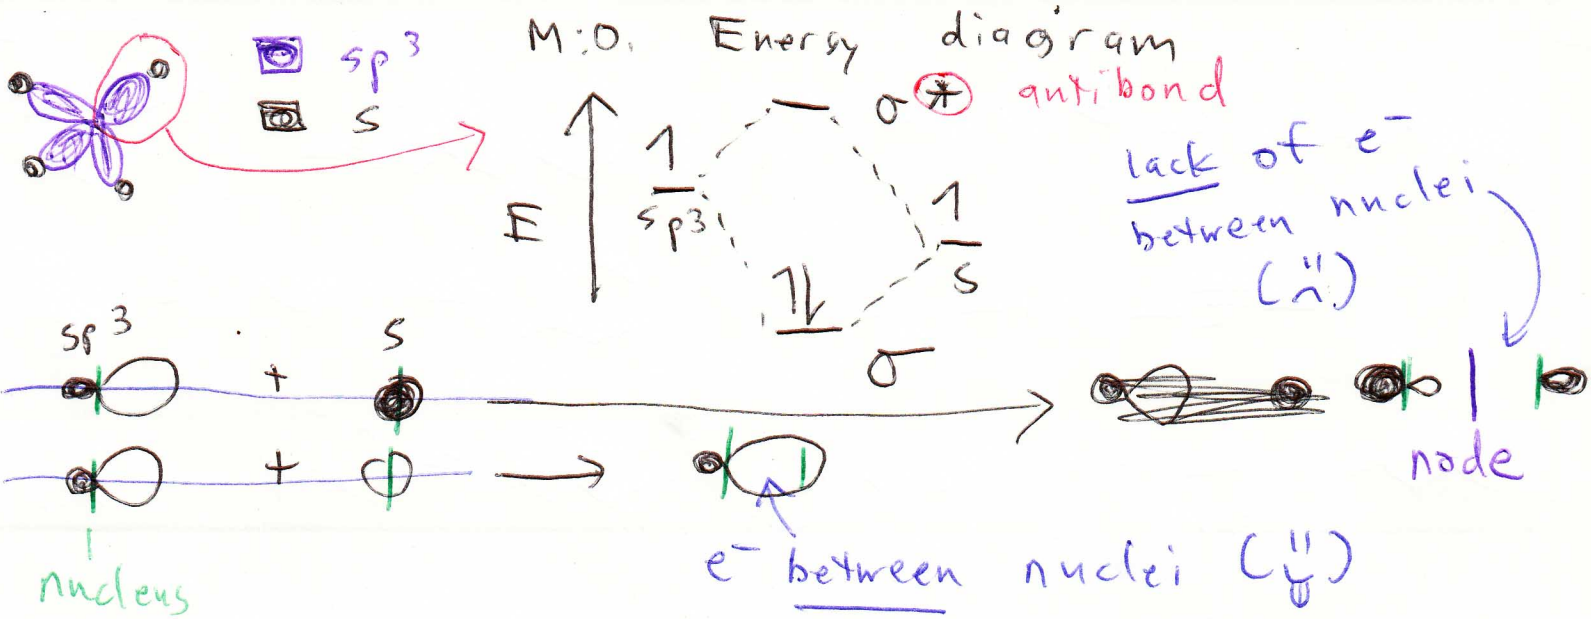 M.O. Energy diagram
sp³
s
σ* antibond
E
1
sp³
1
s
1⇂
σ
lack of e⁻
between nuclei
(¨⌢)
sp³ + s
+
node
nucleus
e⁻ between nuclei (¨⌣)